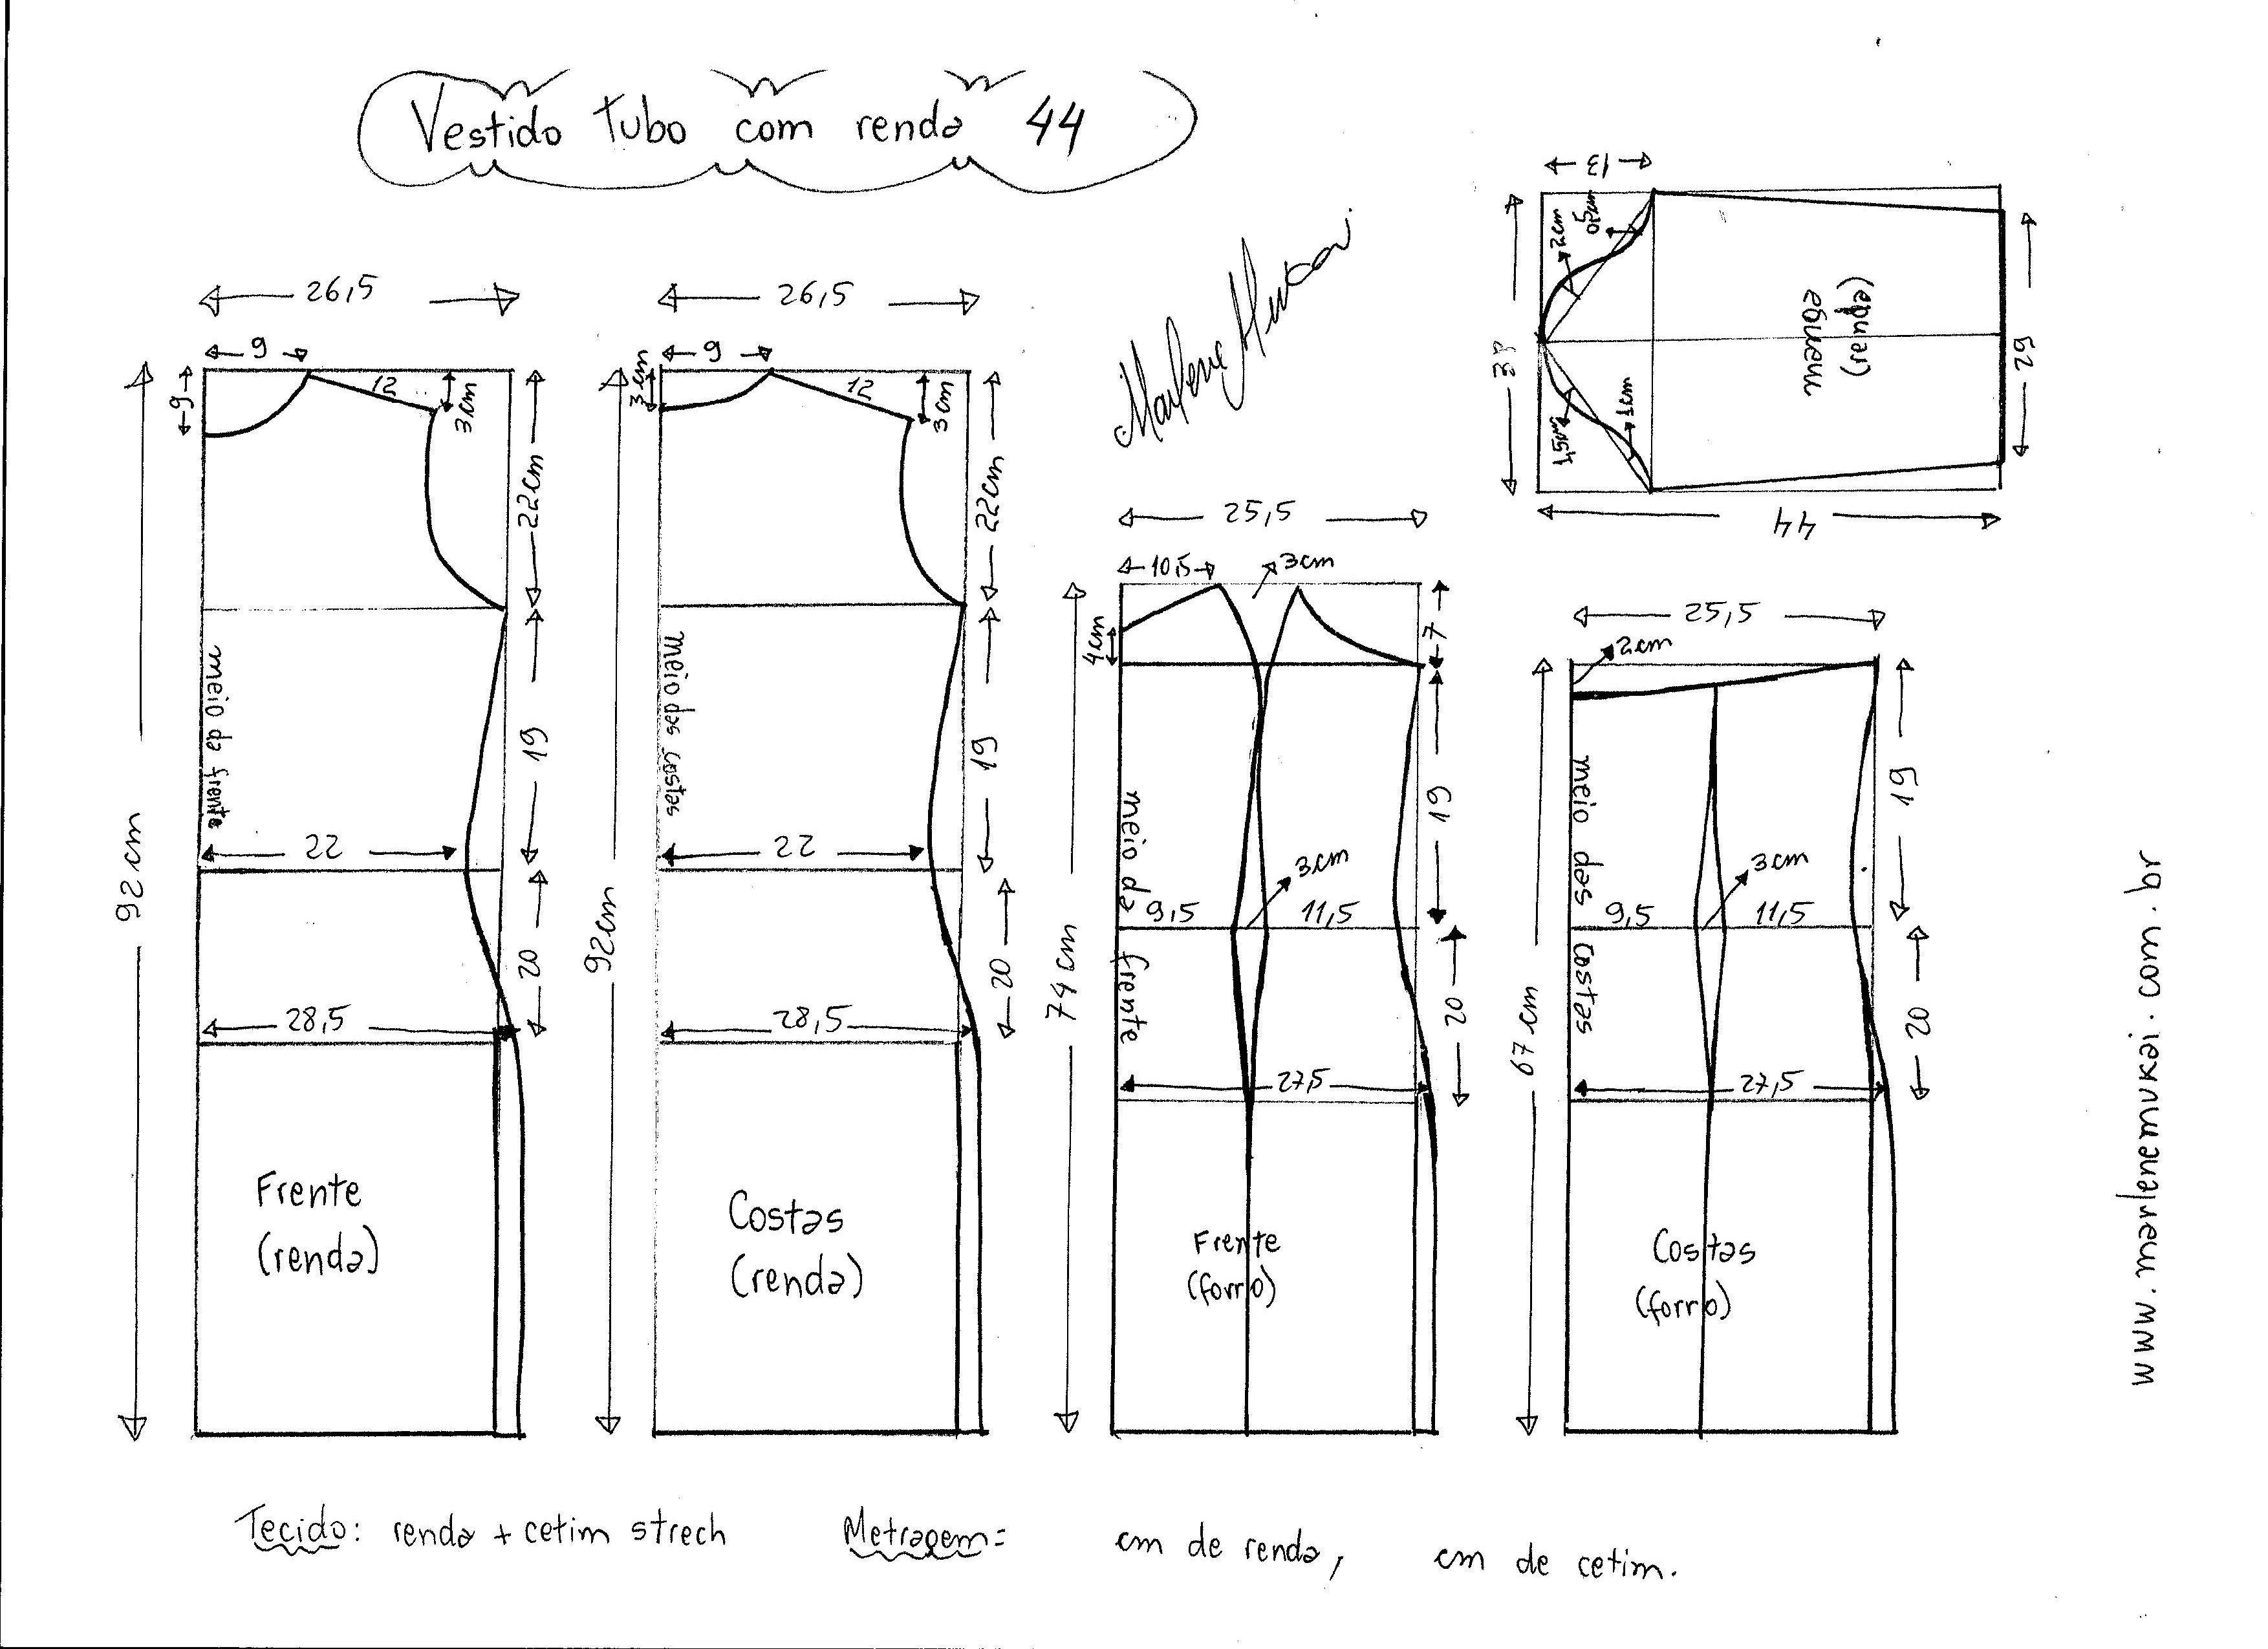 Vestido Tubo com renda 44
Marlene Mukai
26,5
9
9
12
3cm
22cm
19
22
20
28,5
92cm
meio da frente
Frente
(renda)
26,5
9
3cm
12
3cm
22cm
19
22
20
28,5
92cm
meio das costas
Costas
(renda)
25,5
10,5
3cm
4cm
7
19
3cm
9,5
11,5
20
27,5
74cm
meio da frente
Frente
(forro)
25,5
2cm
19
3cm
9,5
11,5
20
27,5
67cm
meio das costas
Costas
(forro)
13
2cm
0,5cm
1,5cm
1cm
manga
(renda)
44
www.marlenemukai.com.br
Tecido: renda + cetim strech
Metragem= cm de renda, cm de cetim.